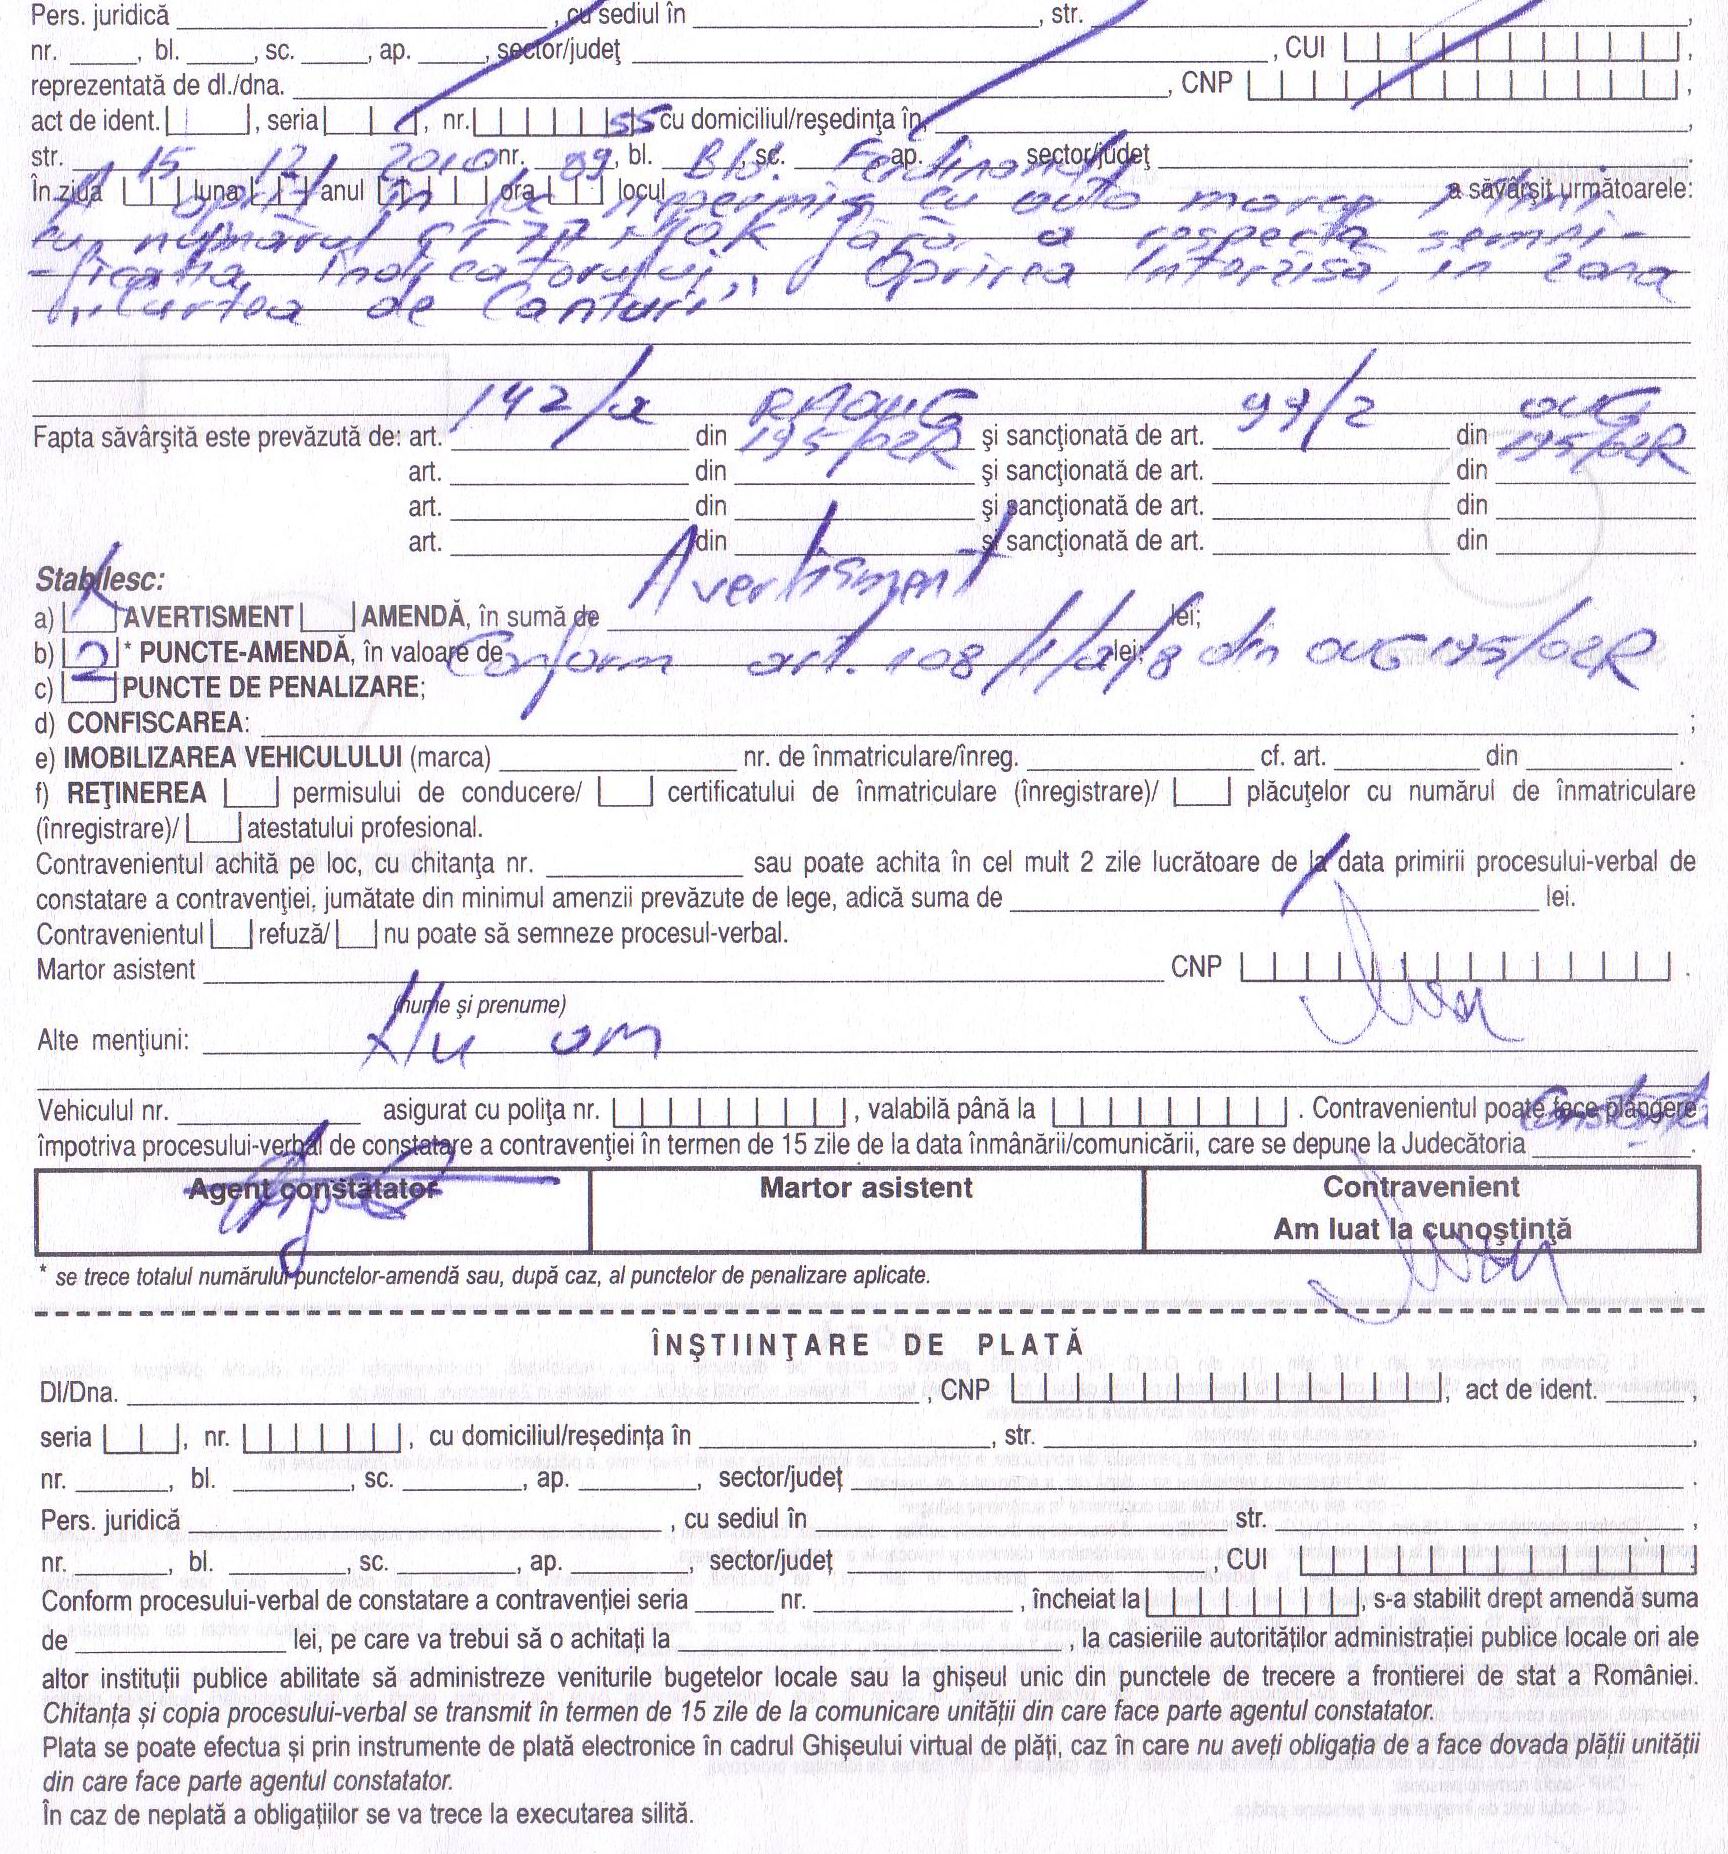 Pers. juridică ____, cu sediul în ____, str. ____,
nr. ____, bl. ____, sc. ____, ap. ____, sector/judeţ ____, CUI ____,
reprezentată de dl./dna. ____, CNP ____,
act de ident. ____, seria ____, nr. ____ cu domiciliul/reşedinţa în, ____,
str. ____ nr. ____, bl. ____, sc. ____ ap. ____ sector/judeţ ____.
În ziua 15 luna 12 anul 2010 ora 09 55 locul Bld. Ferdinand a săvârşit următoarele:
A oprit în loc nepermis cu auto marca
cu numărul CT 77 MOK fără a respecta semni-
-ficația indicatorului „Oprirea Interzisă, în zona
„Curtea de Conturi”
Fapta săvârşită este prevăzută de: art. 142/a din RAOUG 195/02R şi sancţionată de art. 99/2 din OUG 195/02R
art. ____ din ____ şi sancţionată de art. ____ din ____
art. ____ din ____ şi sancţionată de art. ____ din ____
art. ____ din ____ şi sancţionată de art. ____ din ____
Stabilesc:
a) X AVERTISMENT ____ AMENDĂ, în sumă de Avertisment lei;
b) 2 * PUNCTE-AMENDĂ, în valoare de Conform art. 108/1/a/8 din OUG 195/02R lei;
c) ____ PUNCTE DE PENALIZARE;
d) CONFISCAREA: ____;
e) IMOBILIZAREA VEHICULULUI (marca) ____ nr. de înmatriculare/înreg. ____ cf. art. ____ din ____.
f) REŢINEREA ____ permisului de conducere/ ____ certificatului de înmatriculare (înregistrare)/ ____ plăcuţelor cu numărul de înmatriculare
(înregistrare)/ ____ atestatului profesional.
Contravenientul achită pe loc, cu chitanţa nr. ____ sau poate achita în cel mult 2 zile lucrătoare de la data primirii procesului-verbal de
constatare a contravenţiei, jumătate din minimul amenzii prevăzute de lege, adică suma de ____ lei.
Contravenientul ____ refuză/ ____ nu poate să semneze procesul-verbal.
Martor asistent ____ CNP ____.
(nume şi prenume)
Alte menţiuni: Nu am
Vehiculul nr. ____ asigurat cu poliţa nr. ____, valabilă până la ____. Contravenientul poate face plângere
împotriva procesului-verbal de constatare a contravenţiei în termen de 15 zile de la data înmânării/comunicării, care se depune la Judecătoria Constanta.
Agent constatator Martor asistent Contravenient
Am luat la cunoştinţă
* se trece totalul numărului punctelor-amendă sau, după caz, al punctelor de penalizare aplicate.
ÎNŞTIINŢARE DE PLATĂ
Dl/Dna. ____, CNP ____, act de ident. ____,
seria ____, nr. ____, cu domiciliul/reşedinţa în ____, str. ____,
nr. ____, bl. ____, sc. ____, ap. ____, sector/judeţ ____.
Pers. juridică ____, cu sediul în ____ str. ____,
nr. ____, bl. ____, sc. ____, ap. ____, sector/judeţ ____, CUI ____
Conform procesului-verbal de constatare a contravenţiei seria ____ nr. ____, încheiat la ____, s-a stabilit drept amendă suma
de ____ lei, pe care va trebui să o achitaţi la ____, la casieriile autorităţilor administraţiei publice locale ori ale
altor instituţii publice abilitate să administreze veniturile bugetelor locale sau la ghişeul unic din punctele de trecere a frontierei de stat a României.
Chitanţa şi copia procesului-verbal se transmit în termen de 15 zile de la comunicare unităţii din care face parte agentul constatator.
Plata se poate efectua şi prin instrumente de plată electronice în cadrul Ghişeului virtual de plăţi, caz în care nu aveţi obligaţia de a face dovada plăţii unităţii
din care face parte agentul constatator.
În caz de neplată a obligaţiilor se va trece la executarea silită.